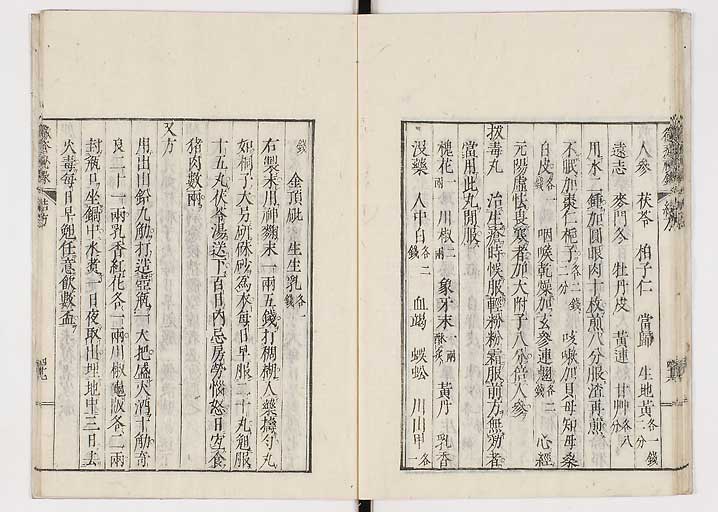 人參 茯苓 柏子仁 當歸 生地黃各一錢二分
遠志 麥門冬 牡丹皮 黃連 甘艸各八分
用水二鍾加圓眼肉十枚煎八分服渣再煎
不眠加棗仁梔子各二錢二分 咳嗽加貝母知母桑
白皮各一錢 咽喉乾燥加玄參連翹各二錢 心經
元陽虛怯畏寒者加大附子八分倍人參
拔毒丸 治生蔘時候服輕粉粉霜服前方無効者
當用此丸間服
槐花一兩 川椒二兩 象牙末一兩 黃丹 乳香
沒藥 人中白各二錢 血竭 蜈蚣 川山甲各一
錢 金頂砒 生生乳各一錢
右製末用神麴末一兩五錢打稠糊入藥擣勻丸
如桐子大另研硃砂為衣每日早服二十丸晚服
十五丸茯苓湯送下百日內忌房勞惱怒日宜食
豬肉數兩
又方
用出山鉛九觔打造壺瓶一大把盛火酒十觔奇
良二十一兩乳香紅花各一兩川椒龜版各二兩
封瓶口坐鍋中水煮一日夜取出埋地中三日去
火毒每日早晚任意飲數盃